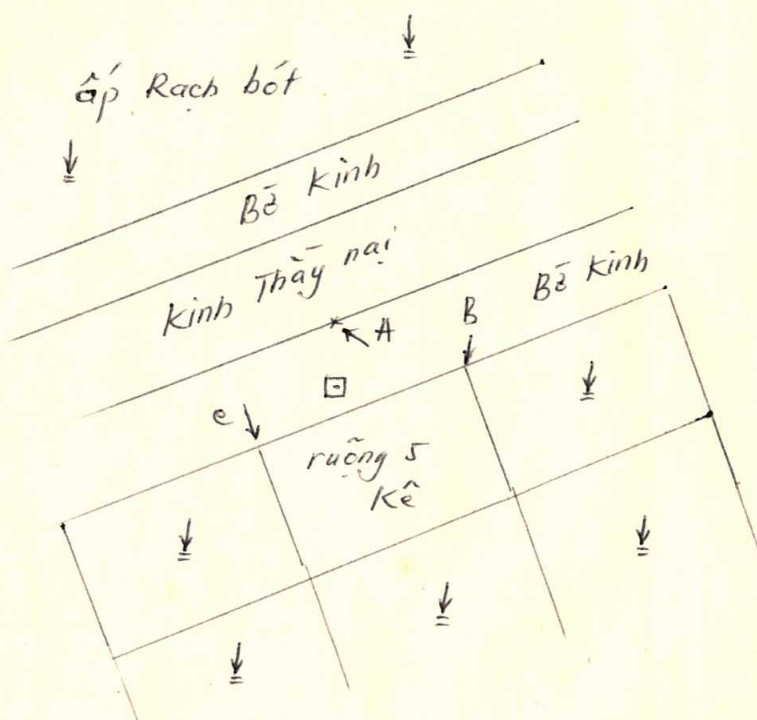 ấp Rạch bót
Bề Kinh
Kinh Thầy nại
Bề Kinh
A
B
e
ruộng 5
Kê